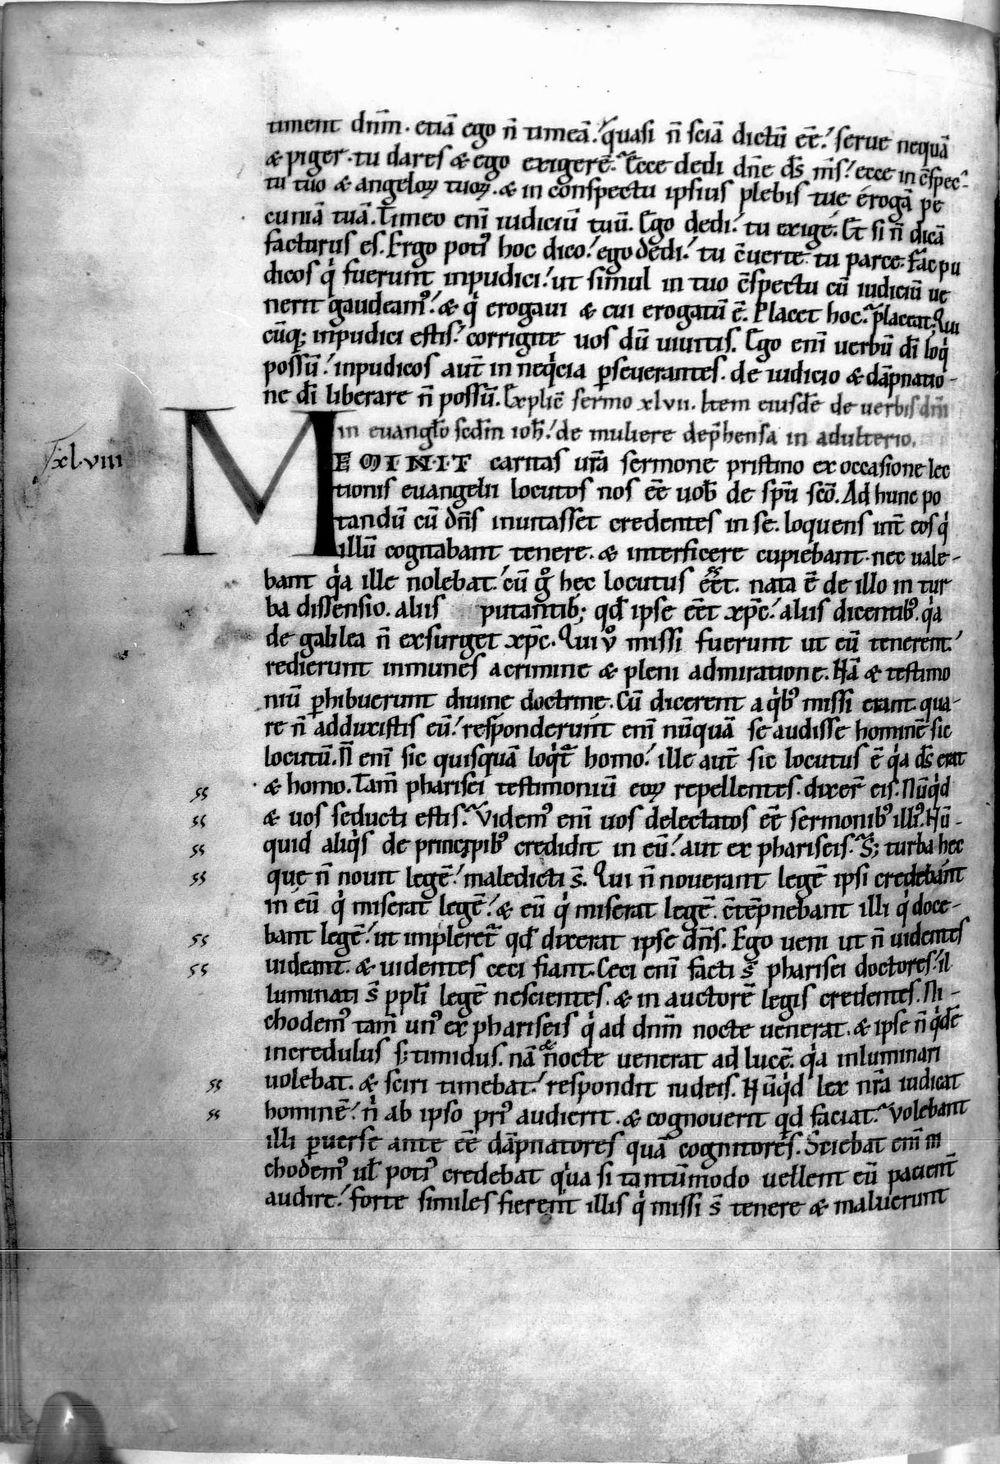 timent dnm̄. etiā ego n̄ timeā. q̓uasi n̄ sciā dictū eē. serue nequā
& piger. tu dares & ego exigerē. Ecce dedi dn̄e ds̄ ms̄. ecce in c̄spec-
tu tuo & angeloꝝ tuoꝝ. & in conspectu ipsius plebis tue erogā pe
cuniā tuā. Timeo eni iudiciū tuū. Ego dedi. tu exige. Et si n̄ dicā
facturus es. Ergo poti᷒ hoc dico. ego dedi. tu c̄uerte. tu parce. Fac pu
dicos q̓ fuerunt inpudici. ut simul in tuo c̄spectu cū iudiciū ue
nerit gaudeam᷒. & q̓ erogaui & cui erogatū ē. Placet hoc. placeat. Qui
cūq; inpudici estis. corrigite uos dū uiuitis. Ego eni uerbū di loq̓
possū. inpudicos aut̄ in neq̓cia ꝑseuerantes. de iudicio & dāpnatio-
ne di liberare n̄ possū. Explic̄ sermo xlvii. Item eiusdē de uerbis dnī
in euangł̄o scdm̄ ioh̄. de muliere dep̄hensa in adulterio.
xl.viii
MEMINIT caritas urā sermone pristino ex occasione lec
tionis euangelii locutos nos eē uob̄ de spū scō. Ad hunc po
tandū cū dn̄s inuitasset credentes in se. loquens int̄ eos q̓
illū cogitabant tenere. & interficere cupiebant. nec uale-
bant q̓a ille nolebat. cū g̊ hec locutus eēt. nata ē de illo in tur
ba dissensio. aliis putantib; qd̄ ipse eēt xp̄c. aliis dicentib᷒. q̓a
de galilea n̄ exsurget xp̄c. Qui v̊ missi fuerunt ut eū tenerent.
redierunt inmunes a crimine & pleni admiratione. Nā & testimo
niū ꝑhibuerunt diuine doctrine. Cū dicerent a q̓b᷒ missi erant. qua-
re n̄ adduxistis eū. responderunt eni nūquā se audisse hominē sic
locutū. N̄ eni sic quisquā loq̓t̄ homo. ille aut̄ sic locutus ē q̓a ds̄ erat
& homo. Tam̄ pharisei testimoniū eoꝝ repellentes. dixer̄ eis. Nūq̓d
& uos seducti estis. Videm᷒ eni uos delectatos eē sermonib᷒ illi᷒. Nū-
quid aliq̓s de principib᷒ credidit in eū. aut ex phariseis. S; turba hec
quę n̄ nouit legē. maledicti s̄. Qui n̄ nouerant legē ipsi credebant
in eū q̓ miserat legē. & eū q̓ miserat legē. c̄tēpnebant illi q̓ doce-
bant legē. ut impleret̄ qd̄ dixerat ipse dn̄s. Ego ueni ut n̄ uidentes
uideant. & uidentes ceci fiant. Ceci eni facti s̄ pharisei doctores. il
luminati s̄ ppl̄i legē nescientes. & in auctorē legis credentes. Ni-
chodem᷒ tam̄ un᷒ ex phariseis q̓ ad dnm̄ nocte uenerat. & ipse n̄ q̓dē
incredulus s; timidus. nā & nocte uenerat ad lucē. q̓a inluminari
uolebat. & sciri timebat. respondit iudeis. Nūq̓d lex nr̄a iudicat
hominē. n̓ ab ipso pri᷒ audierit. & cognouerit q̓d faciat. Volebant
illi ꝑuerse ante eē dāpnatores quā cognitores. Sciebat eni ni
chodem᷒ ul̄ poti᷒ credebat q̓a si tantūmodo uellent eū pacient̄
audire. forte similes fierent illis q̓ missi s̄ tenere & maluerunt